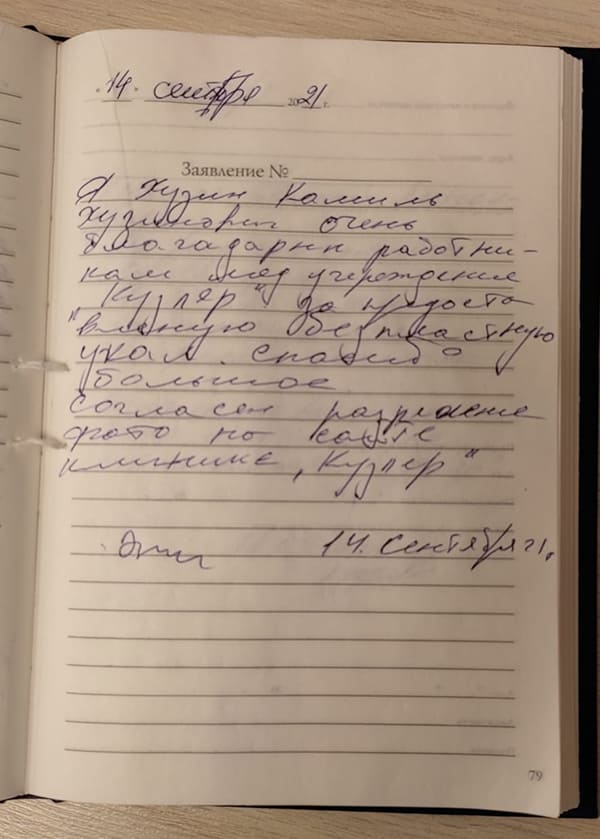 "14" сентября 2021 г.
Заявление №
Я Хузин Камиль
Хузинович очень
благадарнн работни-
кам мед учреждения
"Кузляр" за предоста
вленую безпластную
укол. спасибо
большое
согласен разрешение
фото на сайте
клинике „Кузляр"
14. сентября 21.
79